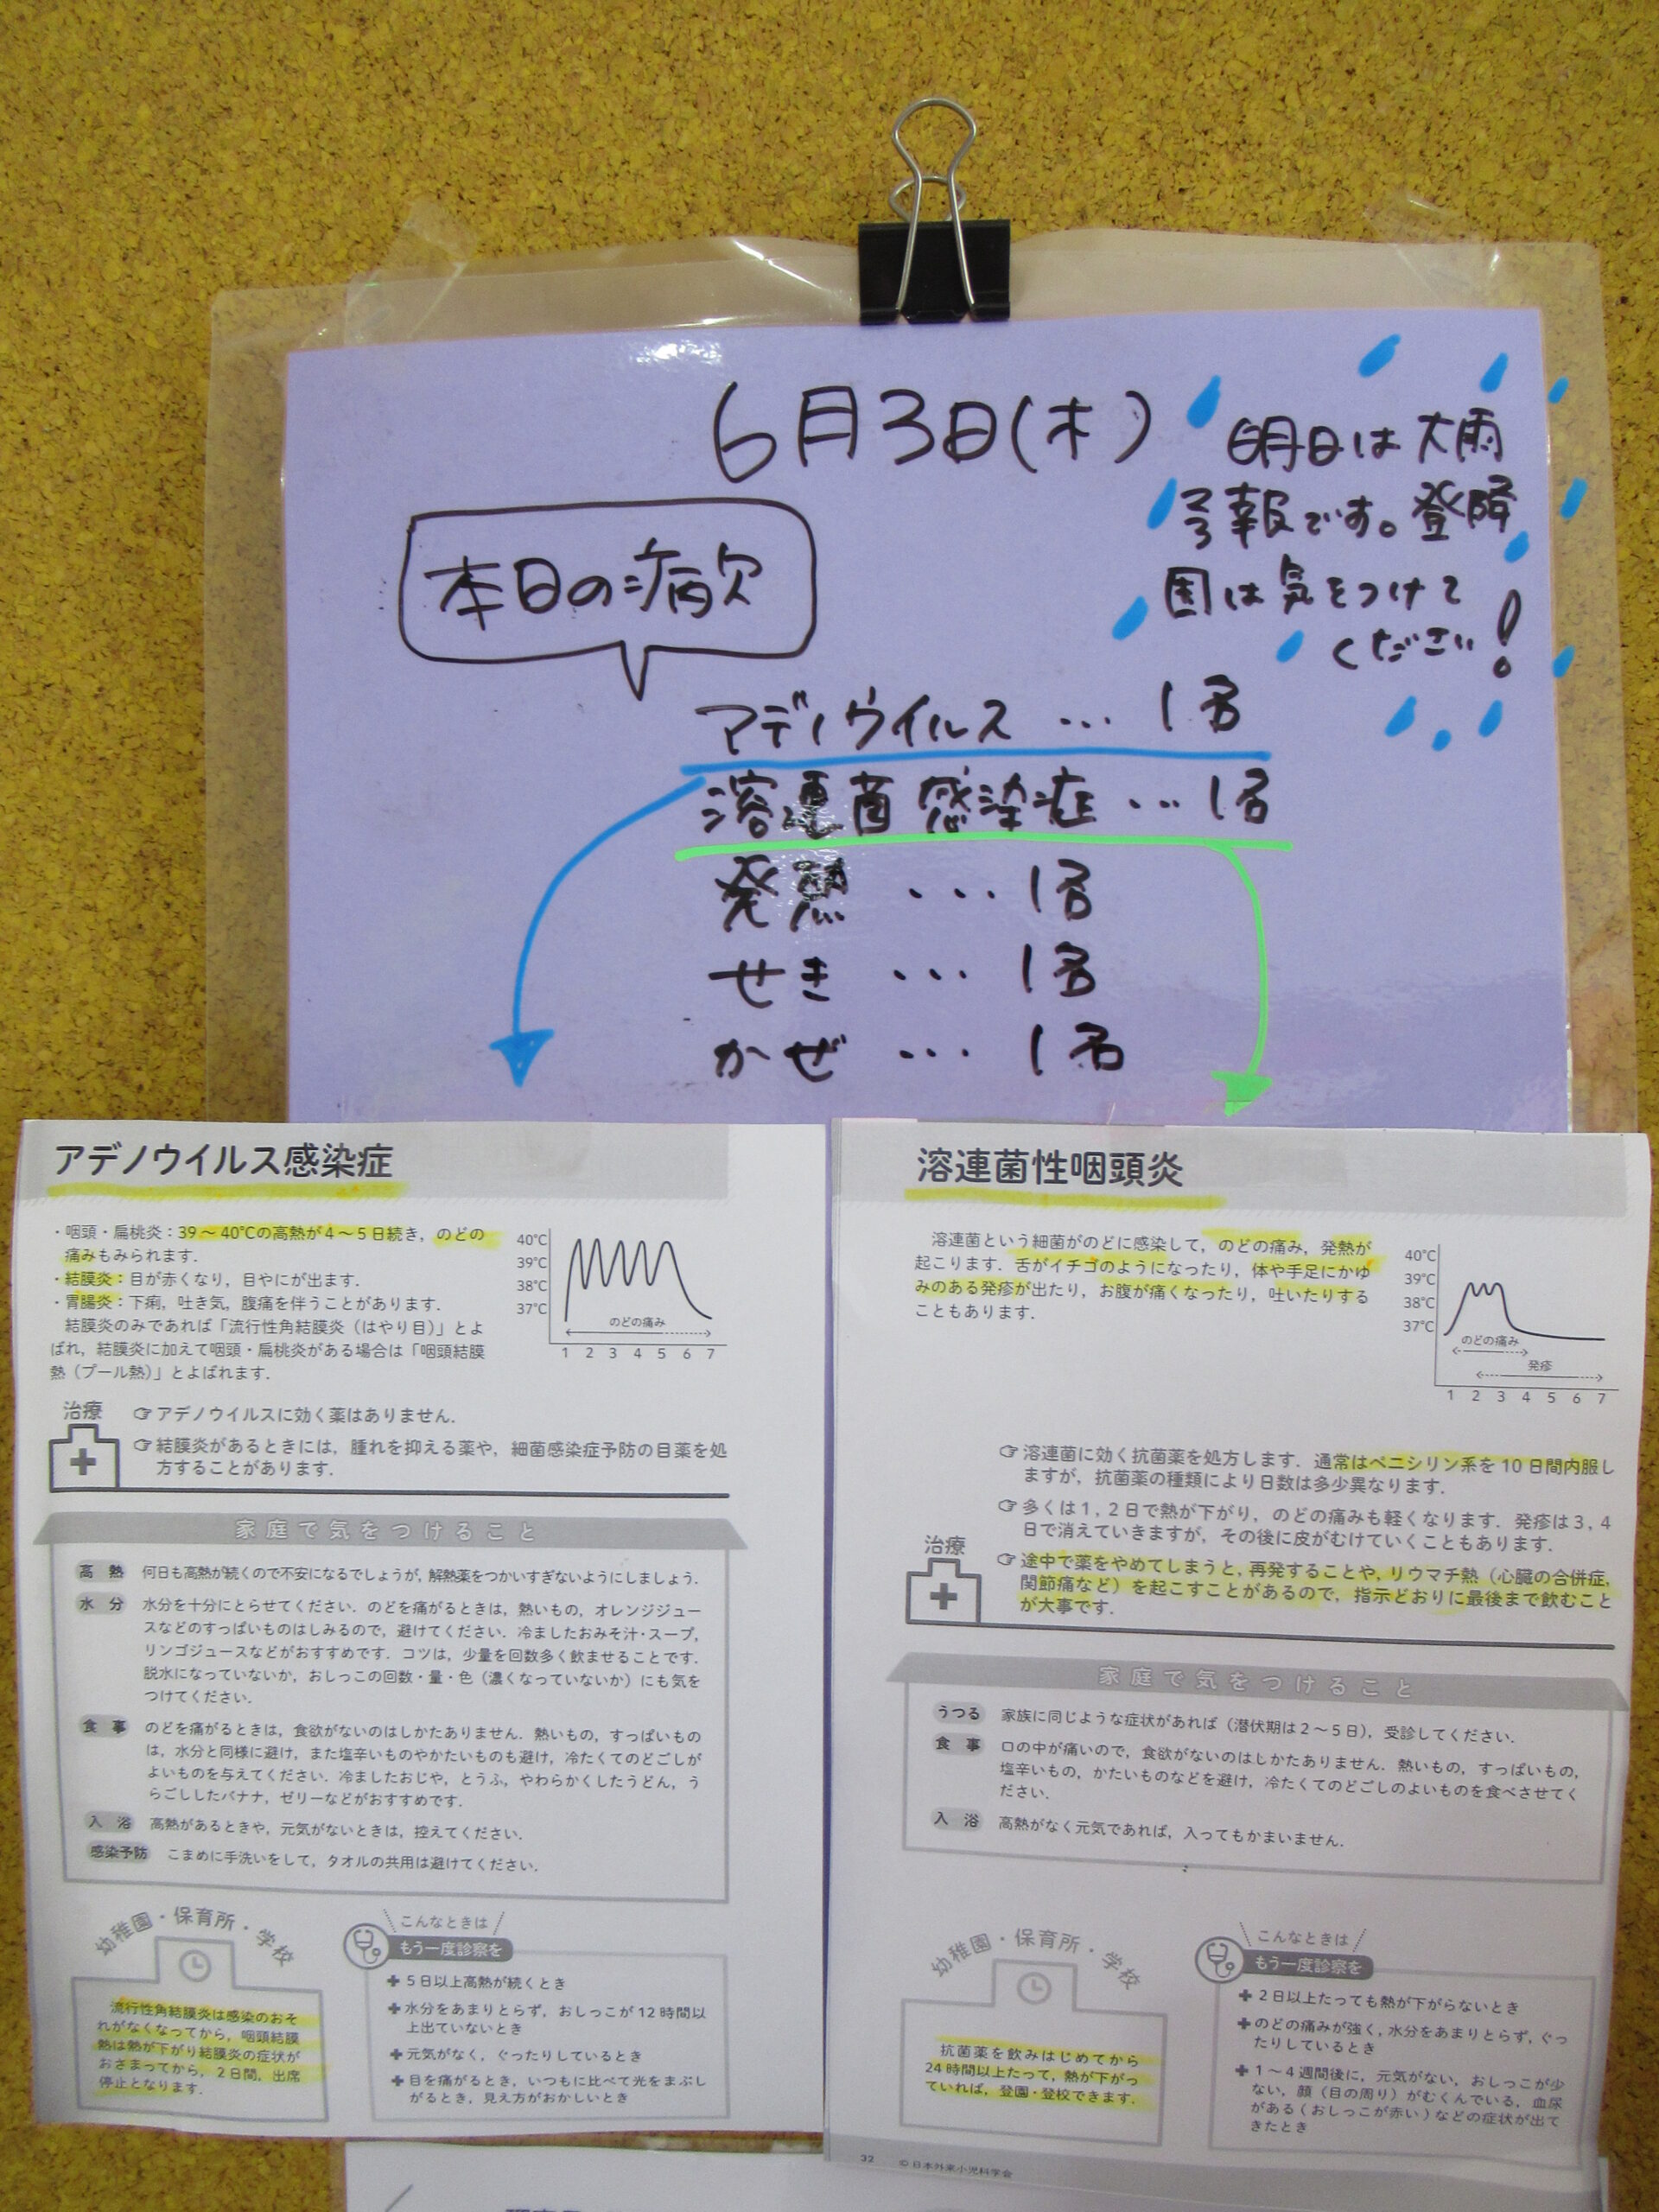 6月3日(木)
明日は大雨
予報です。登降
園は気をつけて
ください!
本日の病欠
アデノウイルス … 1名
溶連菌感染症 … 1名
発熱 … 1名
せき … 1名
かぜ … 1名
アデノウイルス感染症
・咽頭・扁桃炎：39～40℃の高熱が4～5日続き，のどの
痛みもみられます．
・結膜炎：目が赤くなり，目やにが出ます．
・胃腸炎：下痢，吐き気，腹痛を伴うことがあります．
結膜炎のみであれば「流行性角結膜炎（はやり目）」とよ
ばれ，結膜炎に加えて咽頭・扁桃炎がある場合は「咽頭結膜
熱（プール熱）」とよばれます．
40℃
39℃
38℃
37℃
のどの痛み
1 2 3 4 5 6 7
治療
☞アデノウイルスに効く薬はありません．
☞結膜炎があるときには，腫れを抑える薬や，細菌感染症予防の目薬を処
方することがあります．
家庭で気をつけること
高熱 何日も高熱が続くので不安になるでしょうが，解熱薬をつかいすぎないようにしましょう．
水分 水分を十分にとらせてください．のどを痛がるときは，熱いもの，オレンジジュー
スなどのすっぱいものはしみるので，避けてください．冷ましたおみそ汁・スープ，
リンゴジュースなどがおすすめです．コツは，少量を回数多く飲ませることです．
脱水になっていないか，おしっこの回数・量・色（濃くなっていないか）にも気を
つけてください．
食事 のどを痛がるときは，食欲がないのはしかたありません．熱いもの，すっぱいもの
は，水分と同様に避け，また塩辛いものやかたいものも避け，冷たくてのどごしが
よいものを与えてください．冷ましたおじや，とうふ，やわらかくしたうどん，う
らごししたバナナ，ゼリーなどがおすすめです．
入浴 高熱があるときや，元気がないときは，控えてください．
感染予防 こまめに手洗いをして，タオルの共用は避けてください．
幼稚園・保育所・学校
流行性角結膜炎は感染のおそ
れがなくなってから，咽頭結膜
熱は熱が下がり結膜炎の症状が
おさまってから，2日間，出席
停止となります．
こんなときは
もう一度診察を
✚5日以上高熱が続くとき
✚水分をあまりとらず，おしっこが12時間以
上出ていないとき
✚元気がなく，ぐったりしているとき
✚目を痛がるとき，いつもに比べて光をまぶし
がるとき，見え方がおかしいとき
溶連菌性咽頭炎
溶連菌という細菌がのどに感染して，のどの痛み，発熱が
起こります．舌がイチゴのようになったり，体や手足にかゆ
みのある発疹が出たり，お腹が痛くなったり，吐いたりする
こともあります．
40℃
39℃
38℃
37℃
のどの痛み
発疹
1 2 3 4 5 6 7
治療
☞溶連菌に効く抗菌薬を処方します．通常はペニシリン系を10日間内服し
ますが，抗菌薬の種類により日数は多少異なります．
☞多くは1，2日で熱が下がり，のどの痛みも軽くなります．発疹は3，4
日で消えていきますが，その後に皮がむけていくこともあります．
☞途中で薬をやめてしまうと，再発することや，リウマチ熱（心臓の合併症，
関節痛など）を起こすことがあるので，指示どおりに最後まで飲むこと
が大事です．
家庭で気をつけること
うつる 家族に同じような症状があれば（潜伏期は2～5日），受診してください．
食事 口の中が痛いので，食欲がないのはしかたありません．熱いもの，すっぱいもの，
塩辛いもの，かたいものなどを避け，冷たくてのどごしのよいものを食べさせてく
ださい．
入浴 高熱がなく元気であれば，入ってもかまいません．
幼稚園・保育所・学校
抗菌薬を飲みはじめてから
24時間以上たって，熱が下がっ
ていれば，登園・登校できます．
こんなときは
もう一度診察を
✚2日以上たっても熱が下がらないとき
✚のどの痛みが強く，水分をあまりとらず，ぐっ
たりしているとき
✚1～4週間後に，元気がない，おしっこが少
ない，顔（目の周り）がむくんでいる，血尿
がある（おしっこが赤い）などの症状が出て
きたとき
32 ©日本外来小児科学会